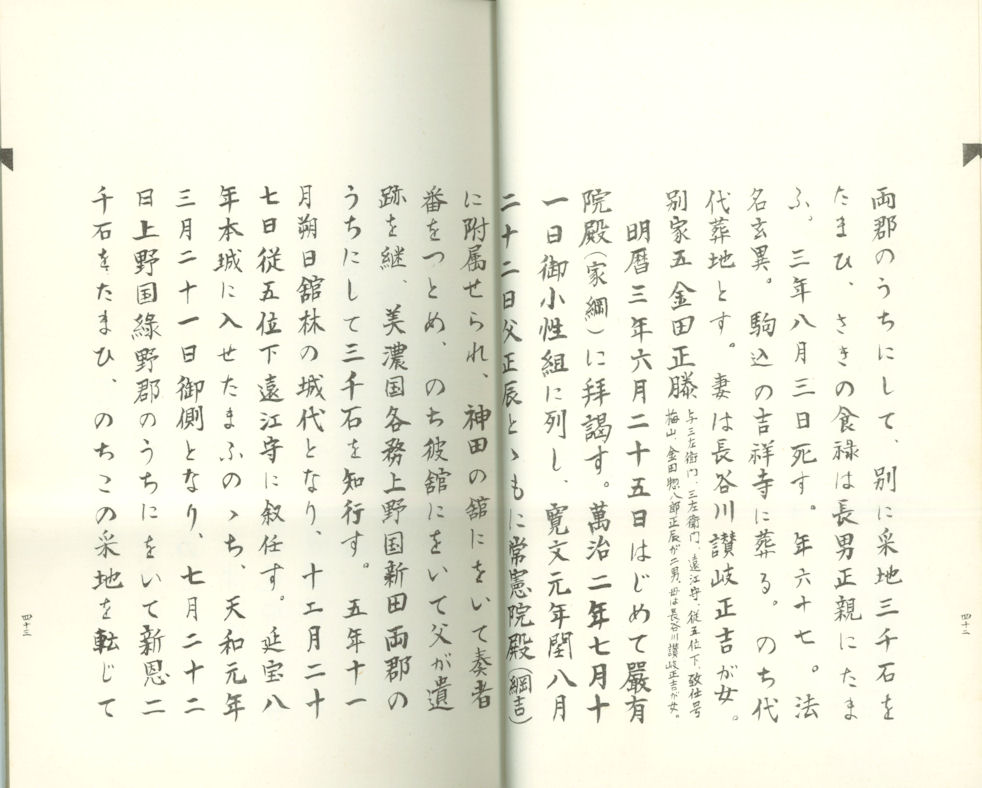 両郡のうちにして、別に采地三千石を
たまひ、さきの食禄は長男正親にたま
ふ。三年八月三日死す。年六十七。法
名玄異。駒込の吉祥寺に葬る。のち代
代葬地とす。妻は長谷川讃岐正吉が女。
別家五金田正勝 与三左衛門、三左衛門、遠江守、従五位下、致仕号
梅山、金田惣八郎正辰が二男、母は長谷川讃岐正吉が女。
明暦三年六月二十五日はじめて嚴有
院殿(家綱)に拝謁す。萬治二年七月十
一日御小性組に列し、寛文元年閏八月
二十二日父正辰とゝもに常憲院殿(綱吉)
に附属せられ、神田の舘にをいて奏者
番をつとめ、のち彼舘にをいて父が遺
跡を継、美濃国各務上野国新田両郡の
うちにして三千石を知行す。五年十一
月朔日舘林の城代となり、十二月二十
七日従五位下遠江守に叙任す。延宝八
年本城に入せたまふのゝち、天和元年
三月二十一日御側となり、七月二十二
日上野国緑野郡のうちにをいて新恩二
千石をたまひ、のちこの采地を転じて
四十二
四十三